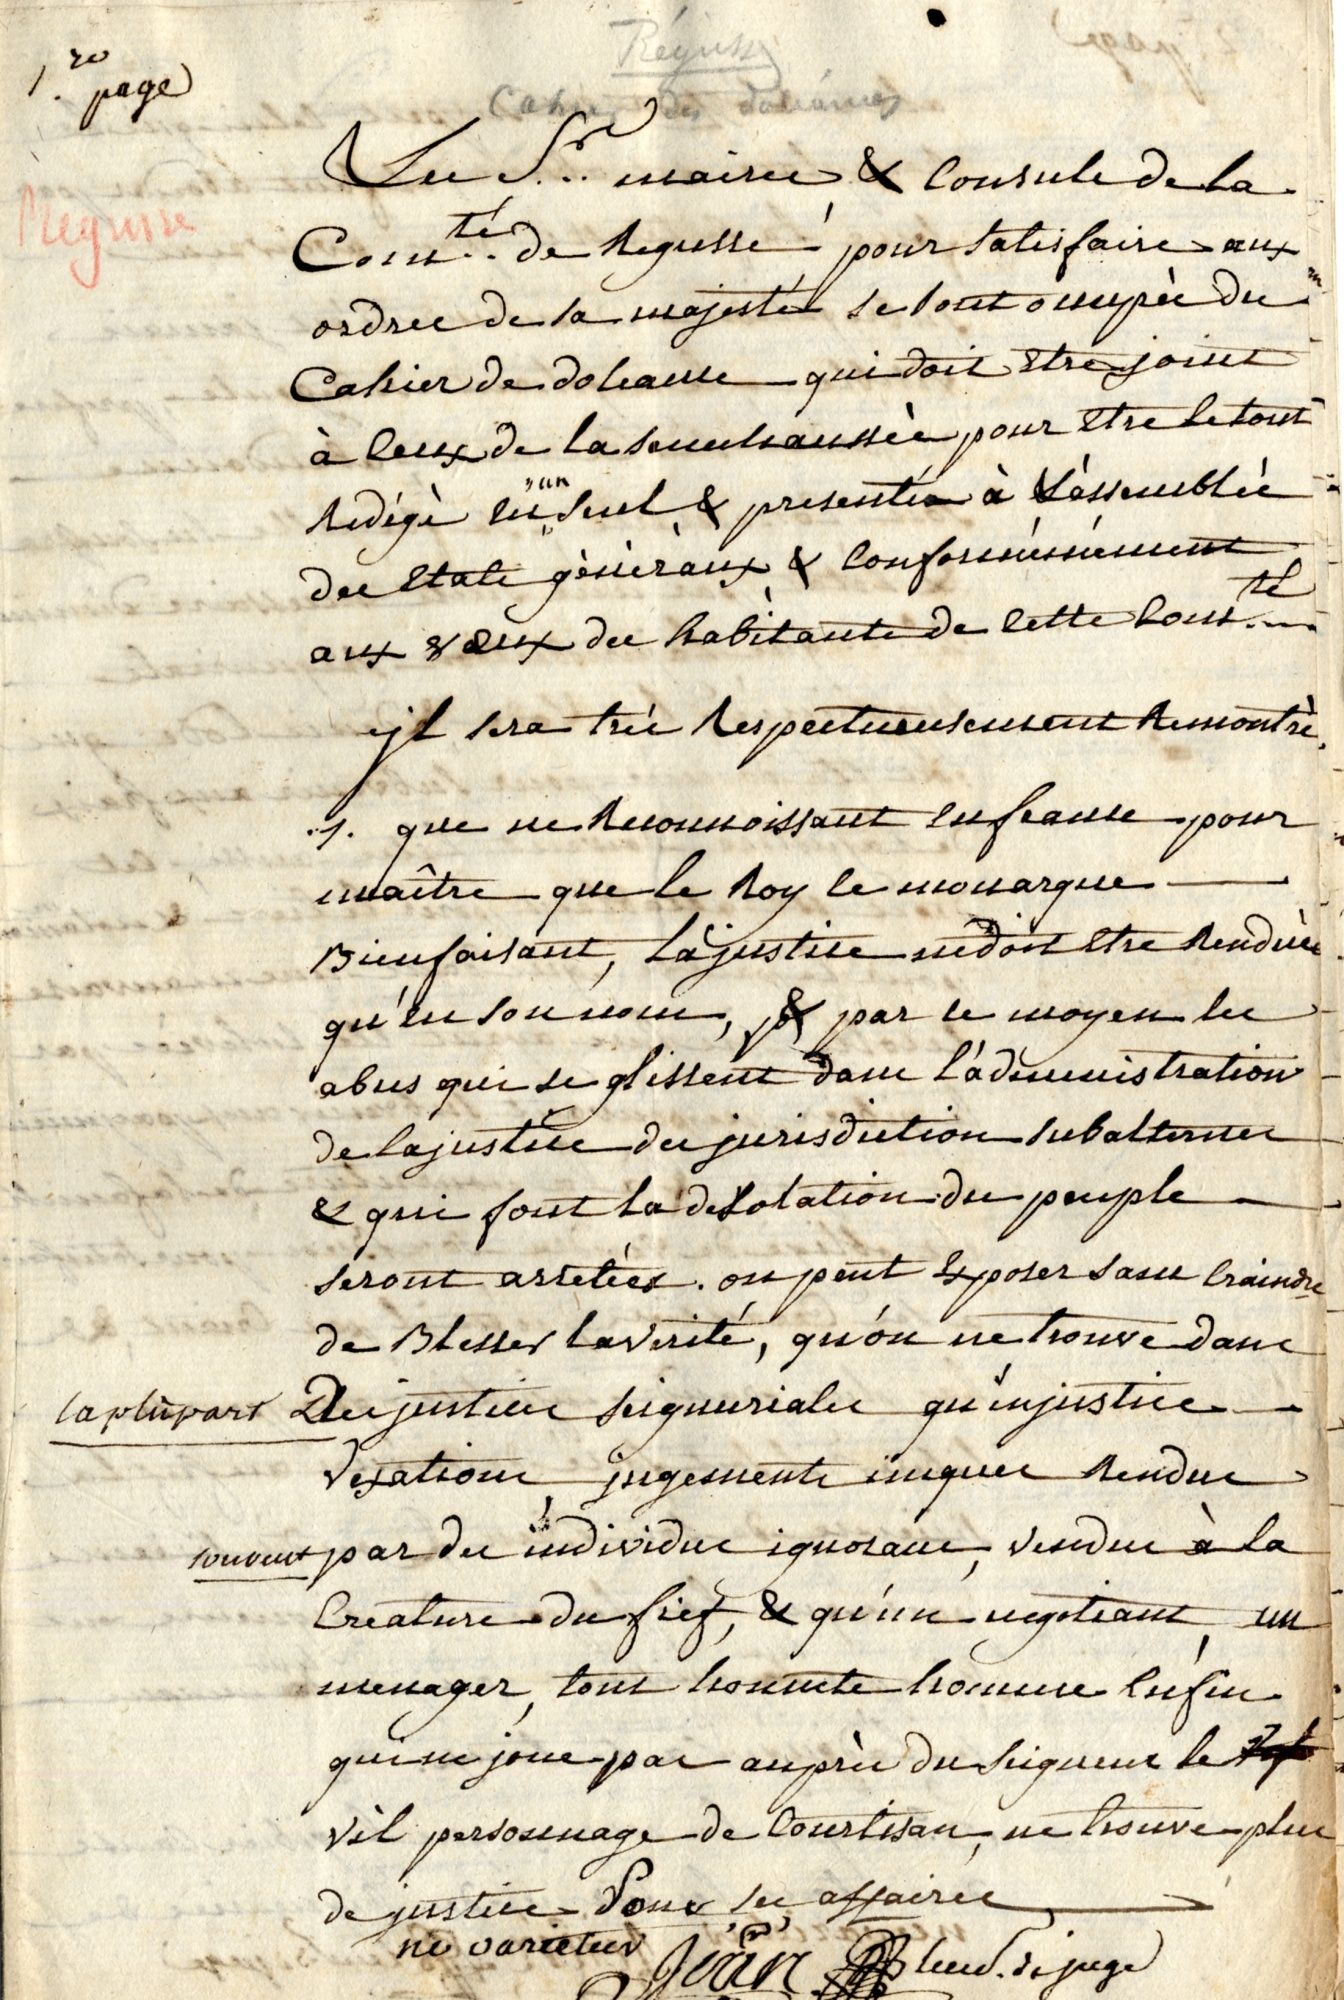 1.re page
Régusse
Cahier des doléances
Regusse
Les Srs maires & Consuls de la
Com.té de Regusse pour satisfaire aux
ordres de sa majesté se sont occupés du
Cahier de doleance qui doit etre joint
à Ceux de la senechaussée pour etre le tout
Redigé en un seul & presenté à l'assemblée
des Etats généraux & Conformémement
aux vœux des habitants de Cette Com.té
jl sera très Respectueusement Remontré.
.1. que ne Reconnoissant en france pour
maître que le Roy le monarque
Bienfaisant, la justice ne doit etre Rendüe
qu'en son nom, & par ce moyen les
abus qui se glissent dans l'administration
de la justice des jurisdiction subalternes
& qui font la desolation du peuple
seront arretées. on peut Exposer sans Craindre
de Blesser la verité, qu'on ne trouve dans
la plûpart Des justices seigneuriales qu'injustice
vexations jugements iniques Rendus
souvent par des individus ignorans, vendus à la
Creature du fief, & qu'un negotiant, un
menager, tout honnete homme Enfin
qui ne joue pas auprès du seigneur le
vil personnage de Courtisan, ne trouve plus
de justice dans ses affaires
ne varietur
Jean lieut. de juge